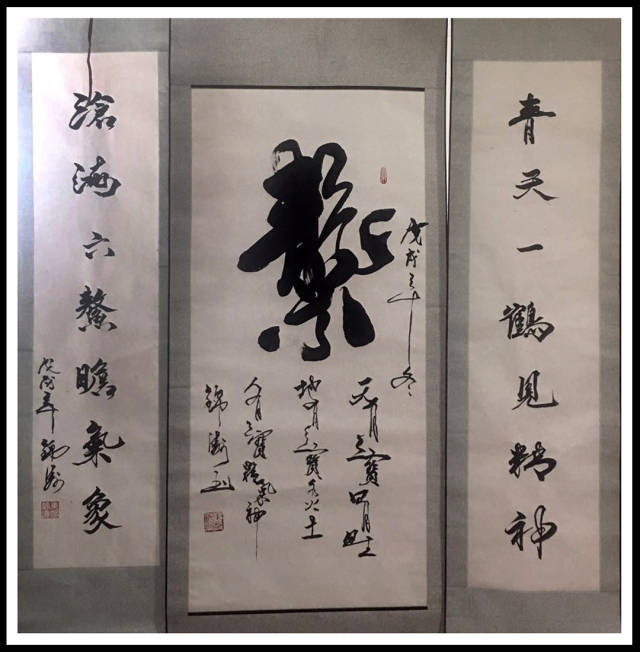 青天一鶴見精神
戊戌年冬
天有三寶日月星
地有三寶水火土
人有三寶精氣神
滄海六鰲瞻氣象
戊戌年